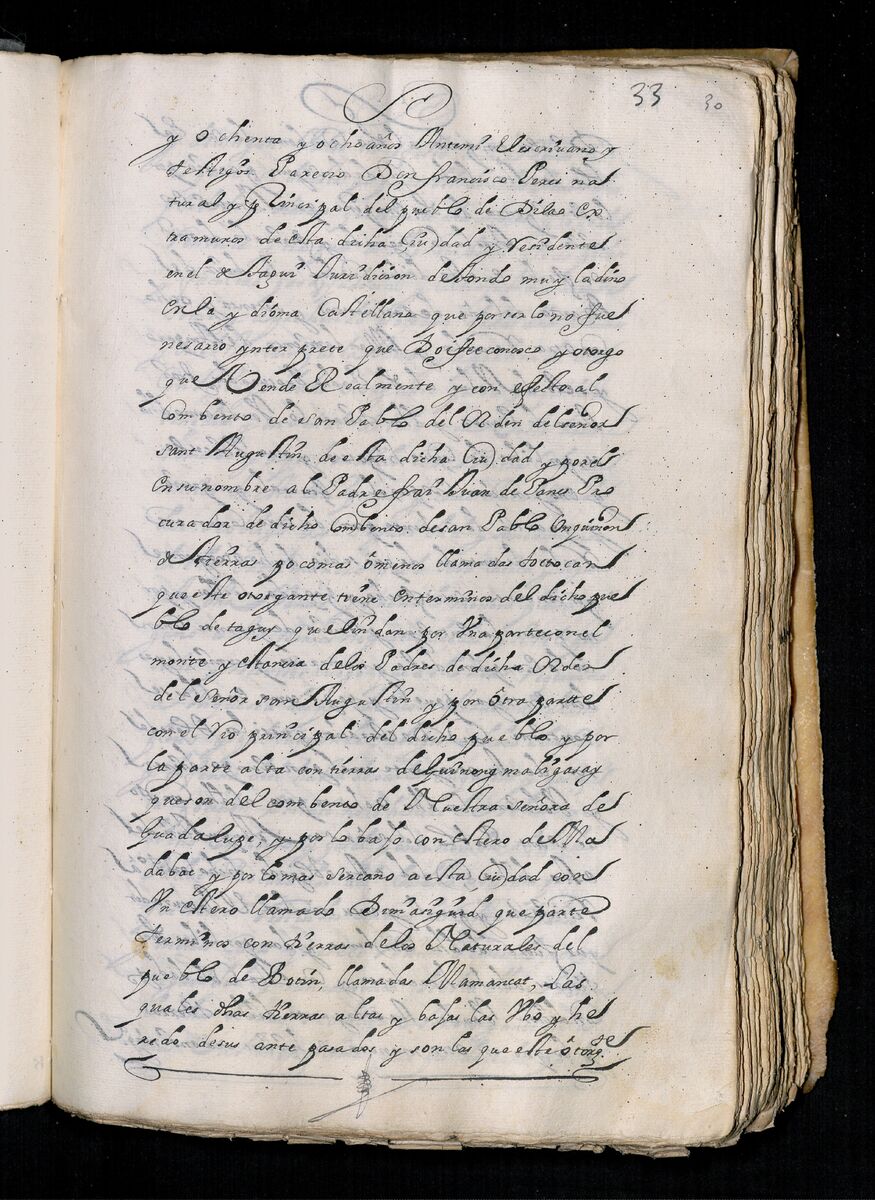 33 30
y ochenta y ocho años Antemi El escriuano y
testigos Parecio Don francisco Peres na
tural y Principal del pueblo de Dilao ex
tramuros de esta dicha Ciudad y Residente
en el de taguì Jurisdicion de tondo muy ladino
en la ydioma Castellana que por serlo no fue
nesario ynterprete que Doi fee conosco y otorgo
que Vende Realmente y con efecto al
Combento de san Pablo del Orden del señor
sant Augustin de esta dicha Ciudad y por el
en su nombre al Padre frai Juan de Panes Pro
curador de dicho Combento de san Pablo Un quiñon
de tierras poco mas ô menos llamadas toctocan
que este otorgante tiene en terminos del dicho pue
blo de taguy que lindan por Vna parte con el
monte y estancia de los Padres de dicha Orden
del señor san Augustin y por ôtra parte
con el Rio principal del dicho pueblo y por
la parte alta con tierras de Guinong maligasay
que son del combento de Nuestra señora de
Guadalupe, y por lo bajo con estero de Ma
dabac y por lo mas sercano a esta Ciudad con
Vn estero llamado que parte
terminos con tierras de los Naturales del
pueblo de llamadas Mamancat, Las
quales dhas tierras altas y bajas las Vbo y he
redo de sus ante pasados y son las que este ôtorgte